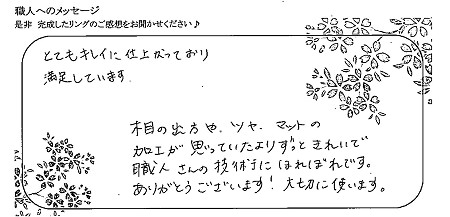 職人へのメッセージ
是非 完成したリングのご感想をお聞かせください♪
とてもキレイに仕上がっており
満足しています.
木目の出方や、ツヤ、マットの
加工が思っていたよりずっときれいで
職人さんの技術にほれぼれです。
ありがとうございます！大切に使います。